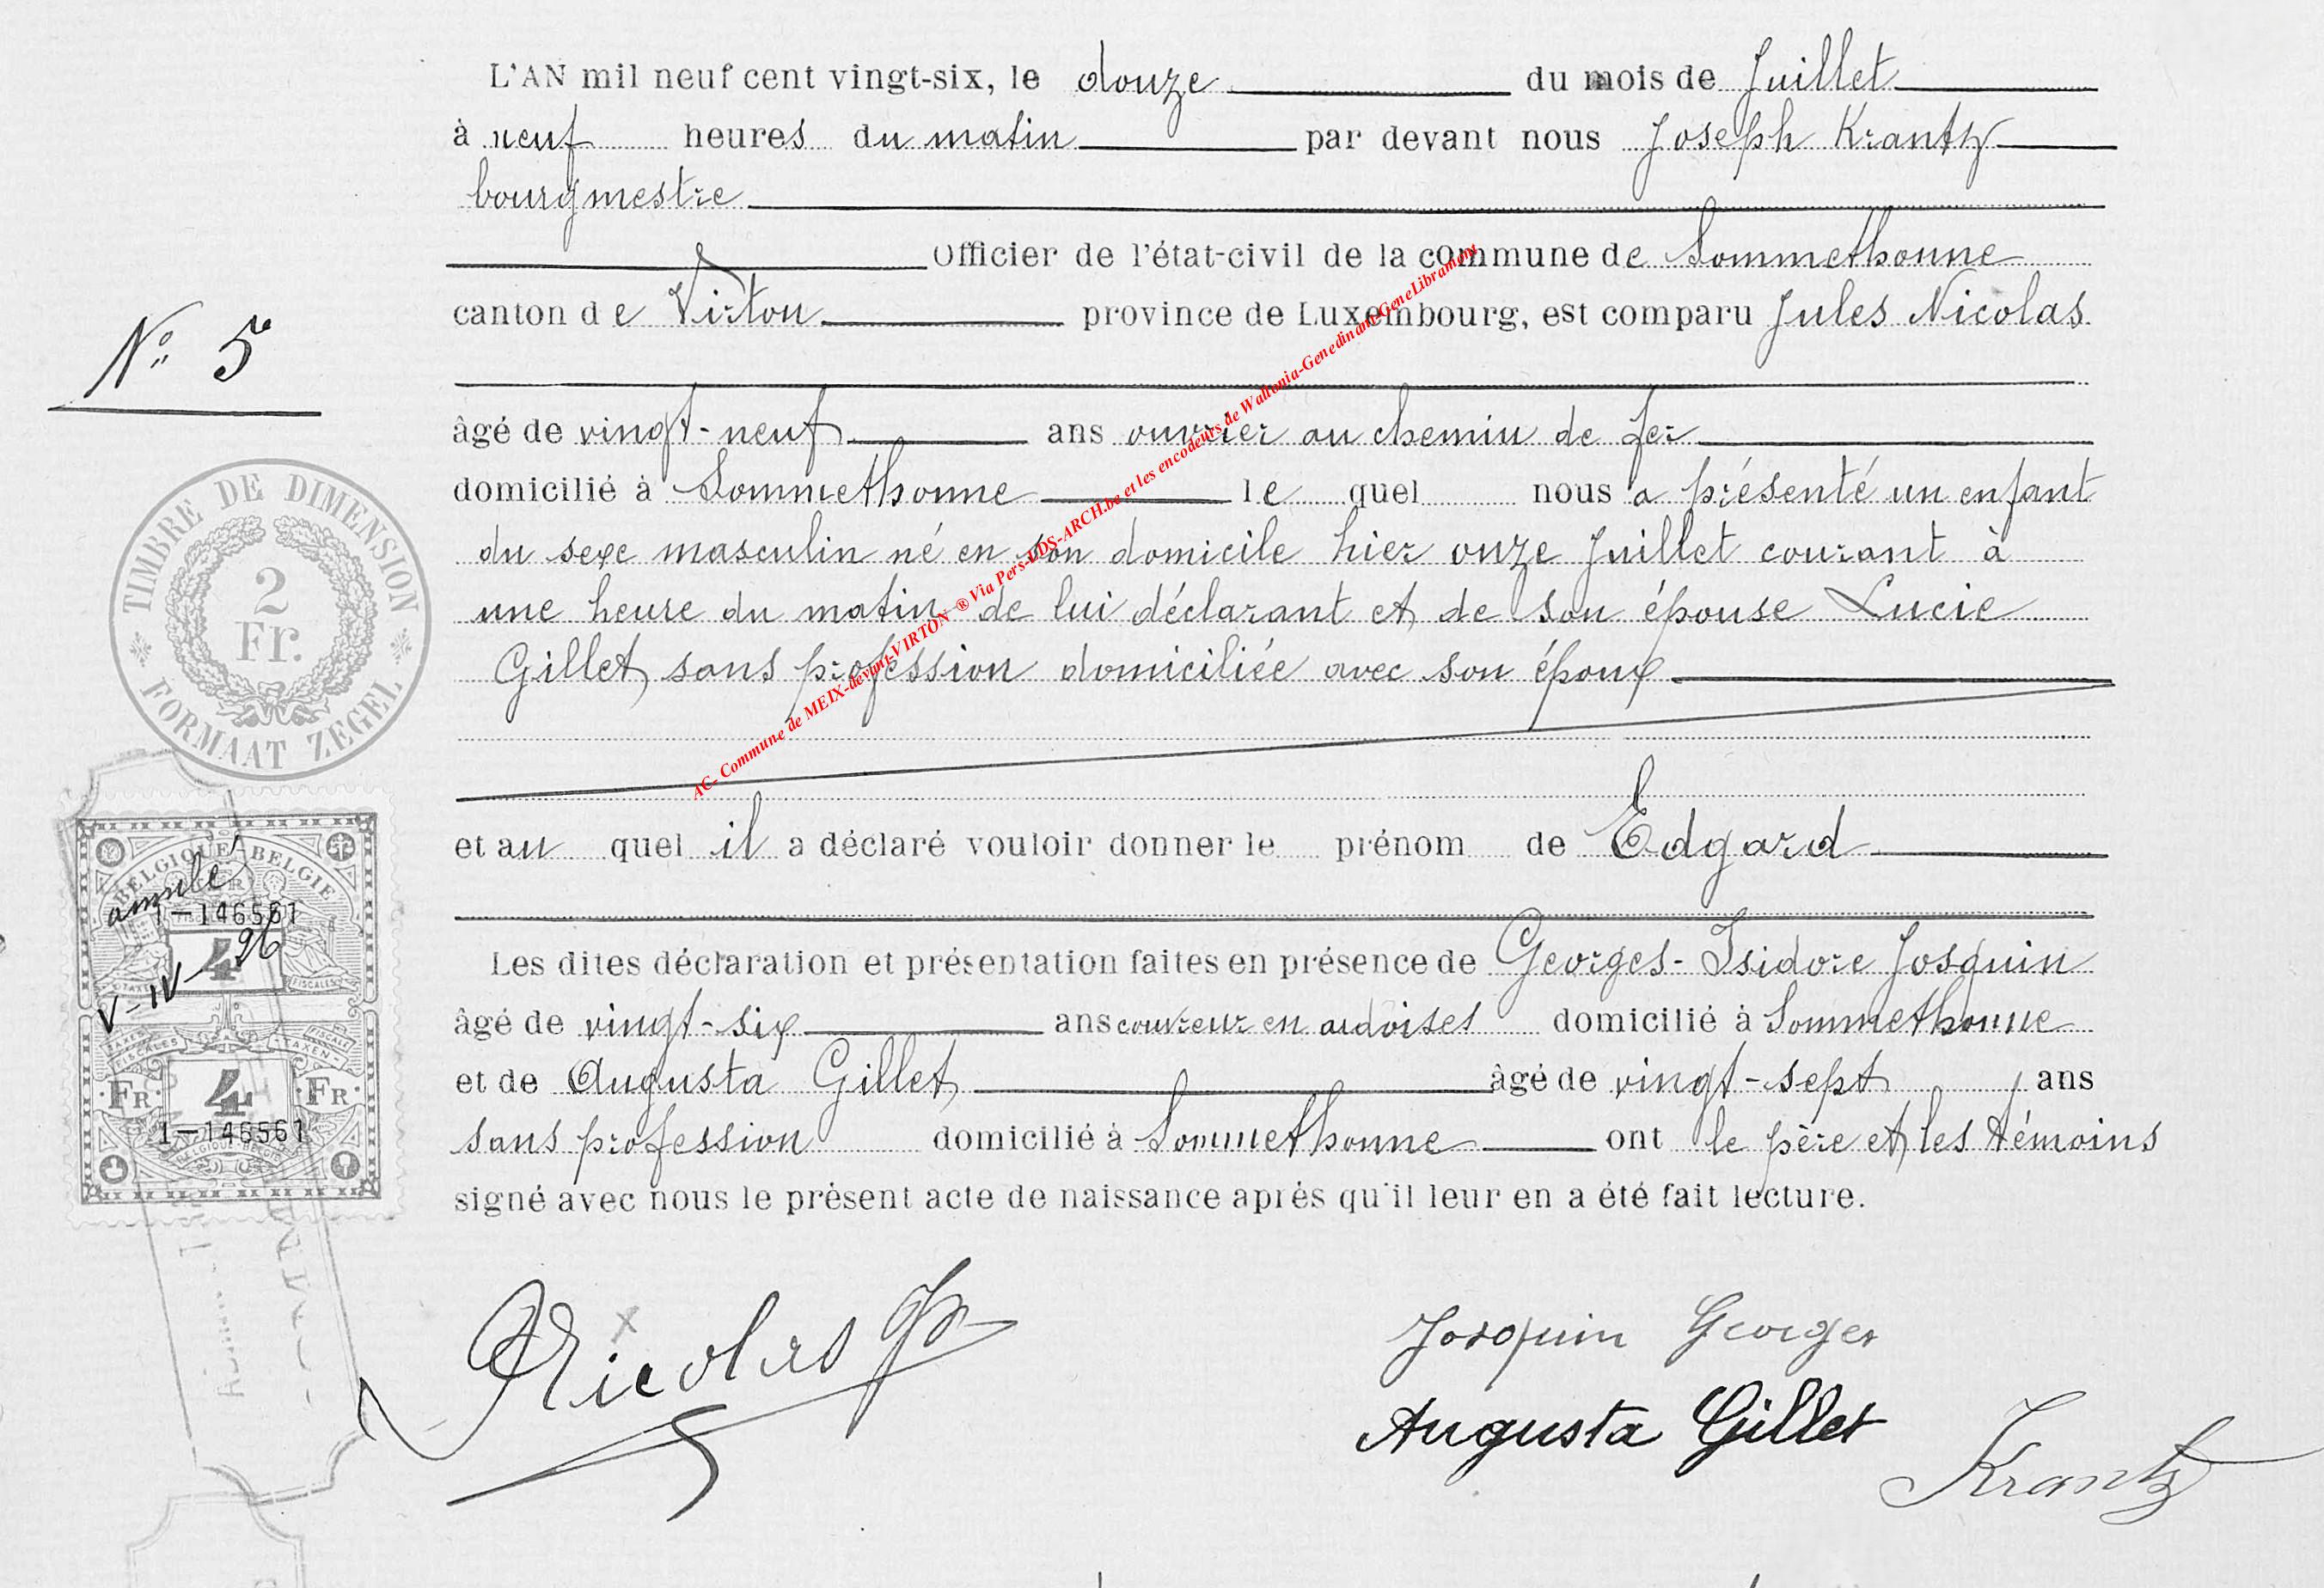 L'AN mil neuf cent vingt-six, le douze du mois de Juillet
à neuf heures du matin par devant nous Joseph Krantz
bourgmestre
Officier de l'état-civil de la commune de Sommethonne
canton de Virton province de Luxembourg, est comparu Jules Nicolas
N° 5
âgé de vingt-neuf ans ouvrier au chemin de fer
domicilié à Sommethonne lequel nous a présenté un enfant
du sexe masculin né en son domicile hier onze Juillet courant à
une heure du matin de lui déclarant et de son épouse Lucie
Gillet sans profession domiciliée avec son époux
et au quel il a déclaré vouloir donner le prénom de Edgard
Les dites déclaration et présentation faites en présence de Georges-Isidore Josquin
âgé de vingt-six ans couvreur en ardoises domicilié à Sommethonne
et de Augusta Gillet âgé de vingt-sept ans
sans profession domicilié à Sommethonne ont le père et les témoins
signé avec nous le présent acte de naissance après qu'il leur en a été fait lecture.
Nicolas
Josquin Georges
Augusta Gillet
Krantz
TIMBRE DE DIMENSION
2
Fr.
FORMAAT ZEGEL
BELGIQUE-BELGIE
annulé
1-146561
4
V-IV-26
TAXES FISCALES
FR. 4 FR.
1-146561
BELGIQUE-BELGIE
AC- Commune de MEIX-devant-VIRTON ® Via Pers-UDS-ARCH.be et les encodeurs de Wallonia-Genedinant-GeneLibramont